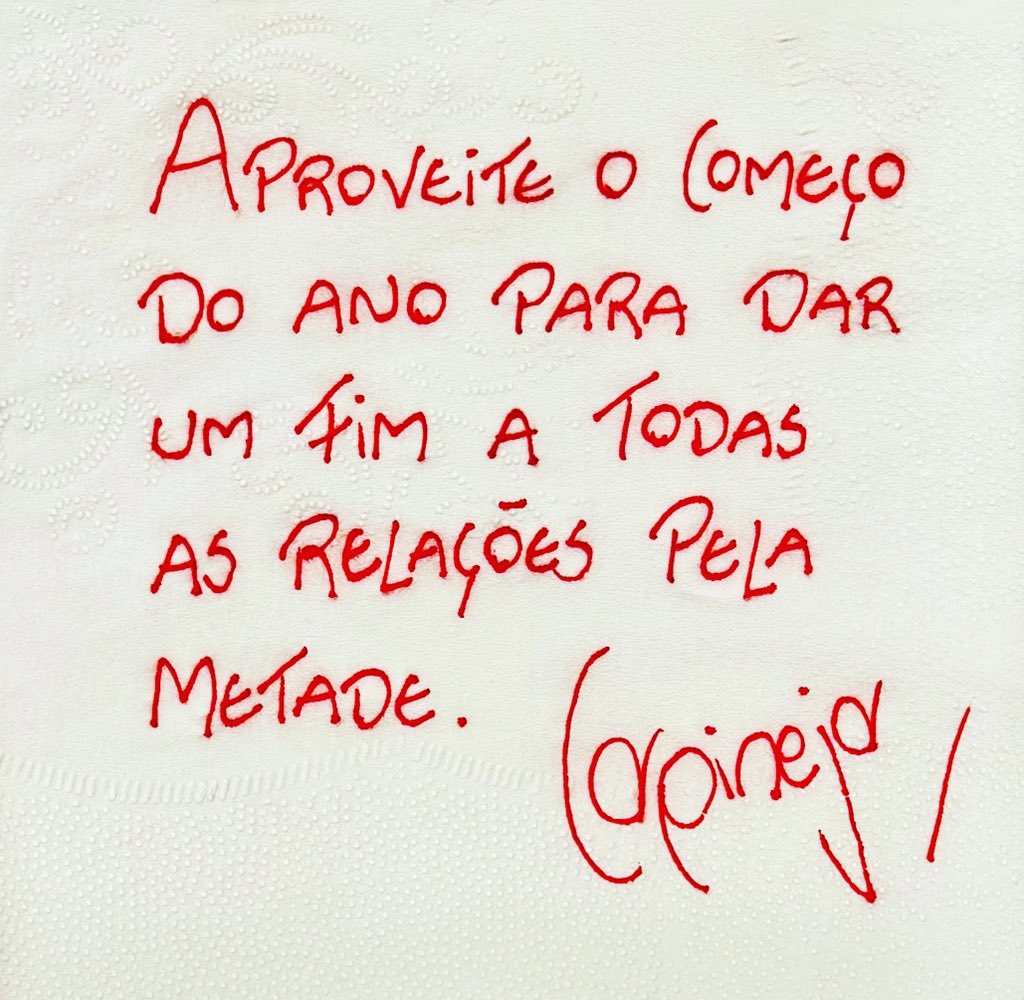 APROVEITE O COMEÇO
DO ANO PARA DAR
UM FIM A TODAS
AS RELAÇÕES PELA
METADE.
Carpinejar